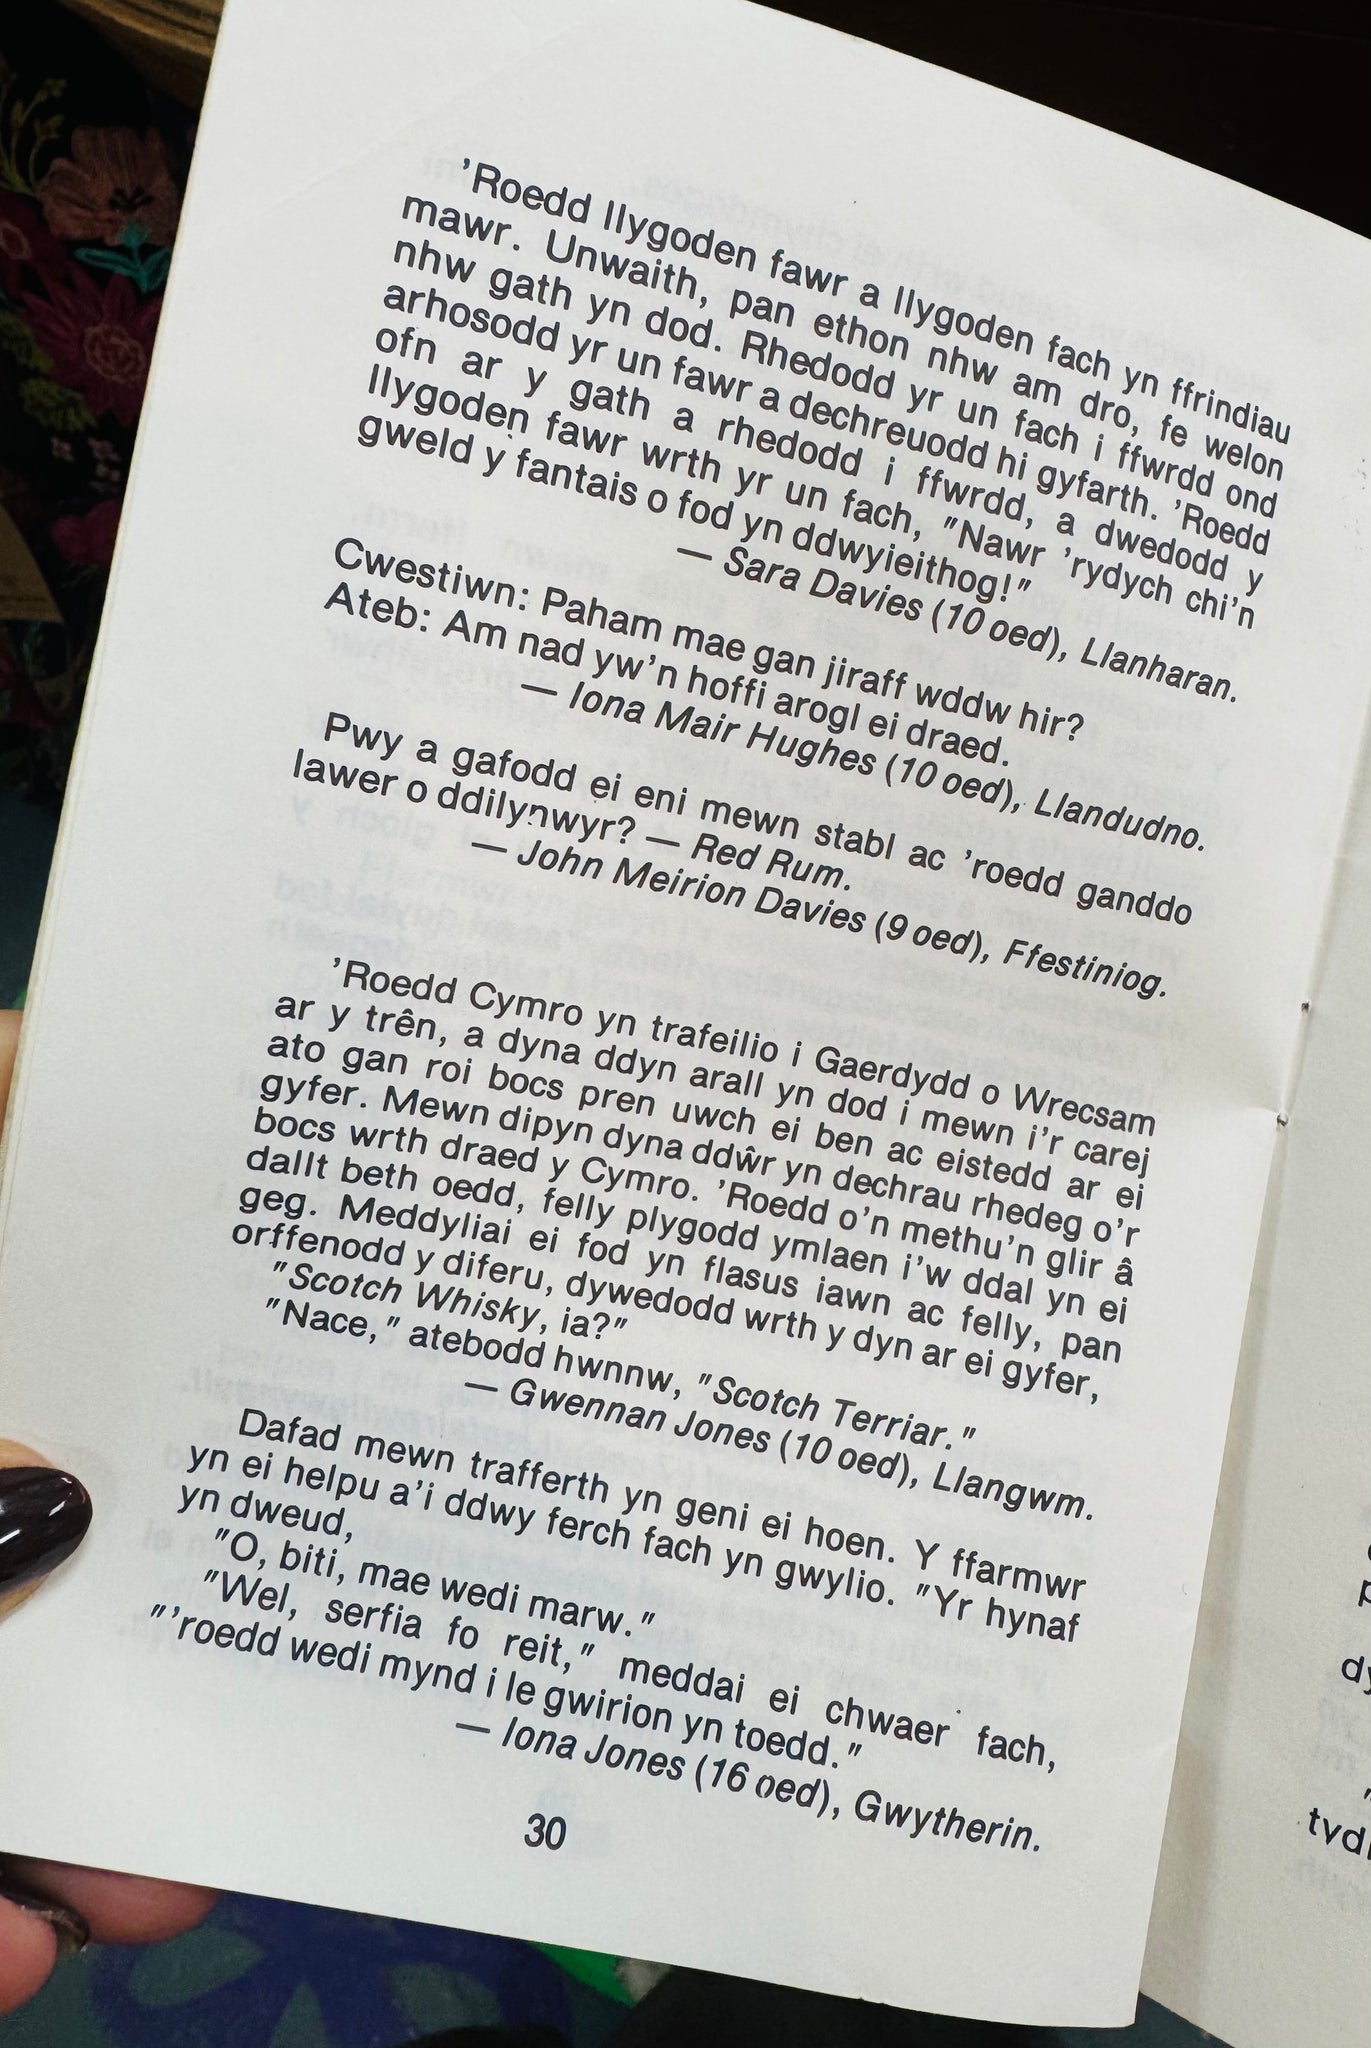 'Roedd llygoden fawr a llygoden fach yn ffrindiau
mawr. Unwaith, pan ethon nhw am dro, fe welon
nhw gath yn dod. Rhedodd yr un fach i ffwrdd ond
arhosodd yr un fawr a dechreuodd hi gyfarth. 'Roedd
ofn ar y gath a rhedodd i ffwrdd, a dwedodd y
llygoden fawr wrth yr un fach, "Nawr 'rydych chi'n
gweld y fantais o fod yn ddwyieithog!"
— Sara Davies (10 oed), Llanharan.
Cwestiwn: Paham mae gan jiraff wddw hir?
Ateb: Am nad yw'n hoffi arogl ei draed.
— Iona Mair Hughes (10 oed), Llandudno.
Pwy a gafodd ei eni mewn stabl ac 'roedd ganddo
lawer o ddilynwyr? — Red Rum.
— John Meirion Davies (9 oed), Ffestiniog.
'Roedd Cymro yn trafeilio i Gaerdydd o Wrecsam
ar y trên, a dyna ddyn arall yn dod i mewn i'r carej
ato gan roi bocs pren uwch ei ben ac eistedd ar ei
gyfer. Mewn dipyn dyna ddŵr yn dechrau rhedeg o'r
bocs wrth draed y Cymro. 'Roedd o'n methu'n glir â
dallt beth oedd, felly plygodd ymlaen i'w ddal yn ei
geg. Meddyliai ei fod yn flasus iawn ac felly, pan
orffenodd y diferu, dywedodd wrth y dyn ar ei gyfer,
"Scotch Whisky, ia?"
"Nace," atebodd hwnnw, "Scotch Terriar."
— Gwennan Jones (10 oed), Llangwm.
Dafad mewn trafferth yn geni ei hoen. Y ffarmwr
yn ei helpu a'i ddwy ferch fach yn gwylio. "Yr hynaf
yn dweud,
"O, biti, mae wedi marw."
"Wel, serfia fo reit," meddai ei chwaer fach,
"'roedd wedi mynd i le gwirion yn toedd."
— Iona Jones (16 oed), Gwytherin.
30